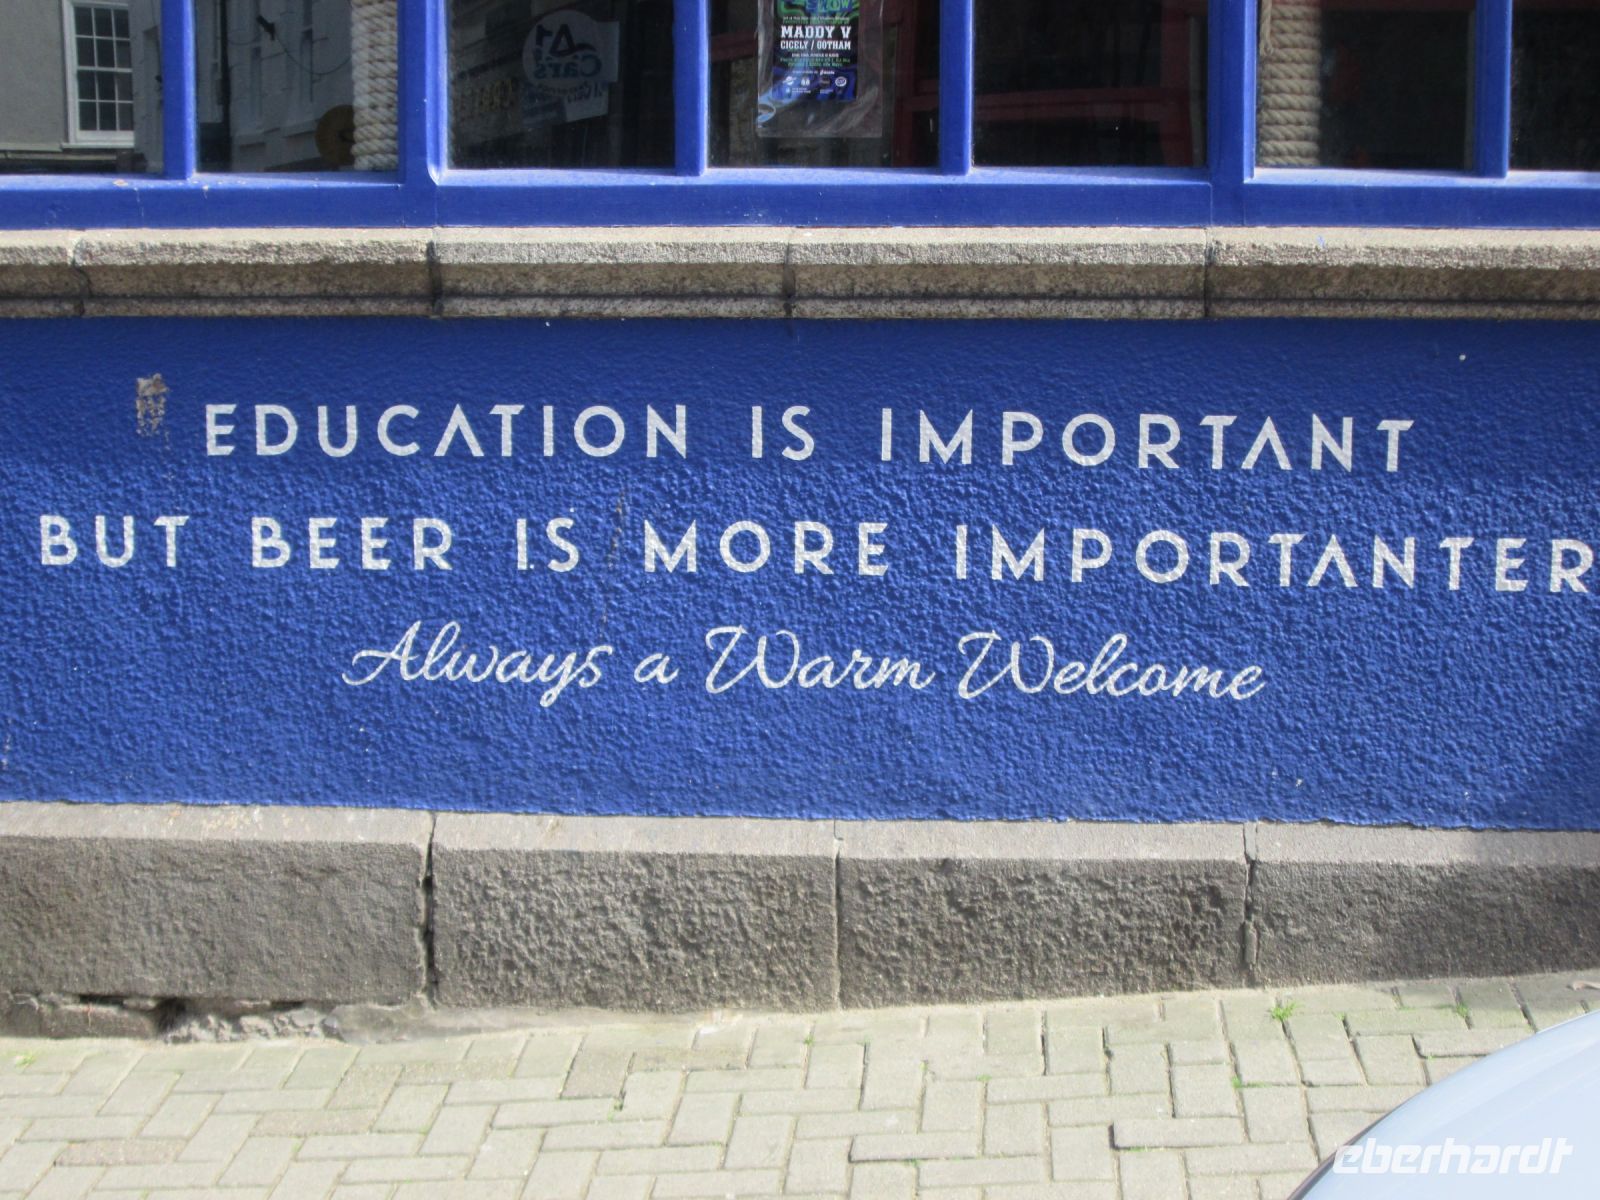 MADDY V
CICELY / GOTHAM
A1
Cars
EDUCATION IS IMPORTANT
BUT BEER IS MORE IMPORTANTER
Always a Warm Welcome
eberhardt